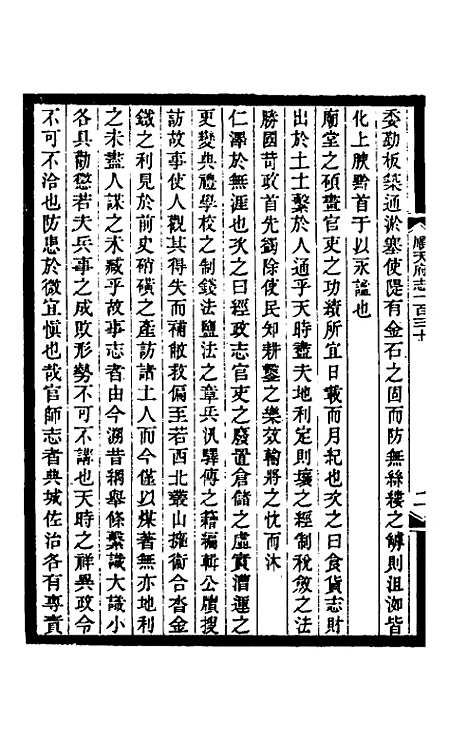 委勤板築通淤塞使隄有金石之固而防無絲縷之罅則沮洳皆
化上腴黔首于以永謐也
廟堂之碩畫官吏之功績所宜日載而月紀也次之曰食貨志財
出於土土繫於人通乎天時盡夫地利定則壤之經制稅斂之法
勝國苛政首先蠲除使民知耕鑿之樂效輸將之忱而沐
仁澤於無涯也次之曰經政志官吏之廢置倉儲之虛實漕運之
更變典禮學校之制錢法鹽法之章兵汛驛傳之籍編輯公牘搜
訪故事使人觀其得失而補敝救偏至若西北叢山擁衛合沓金
鐵之利見於前史硝磺之產訪諸土人而今僅以煤著無亦地利
之未盡人謀之未臧乎故事志者由今溯昔稱舉條繫識大識小
各具勸懲若夫兵事之成敗形勢不可不講也天時之祥異政令
不可不洽也防患於微宜愼也哉官師志者典城佐治各有專責
順天府志一百三十
二